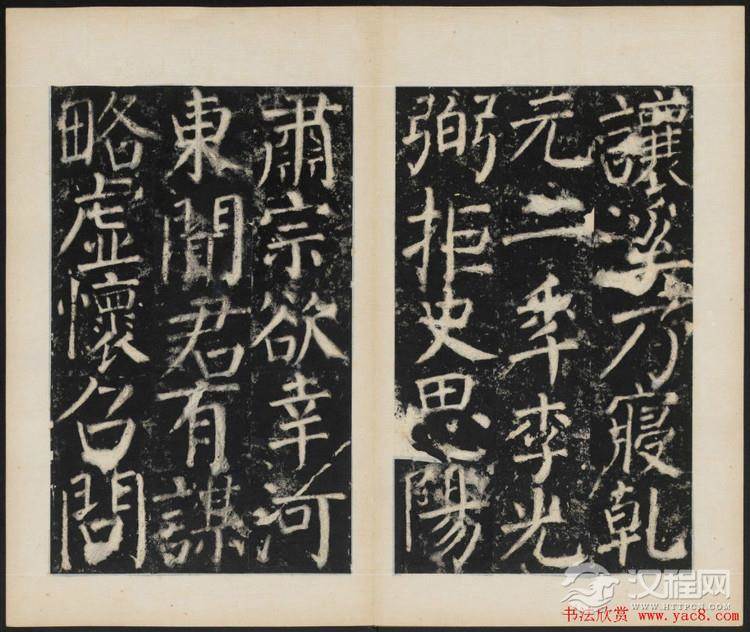 讓溪乃寢乾
元二年李光
弼拒史思陽
肅宗欲幸河
東聞君有謀
略虛懷召問
汉程网
WWW.HTTPCN.COM
书法欣赏 www.yac8.com